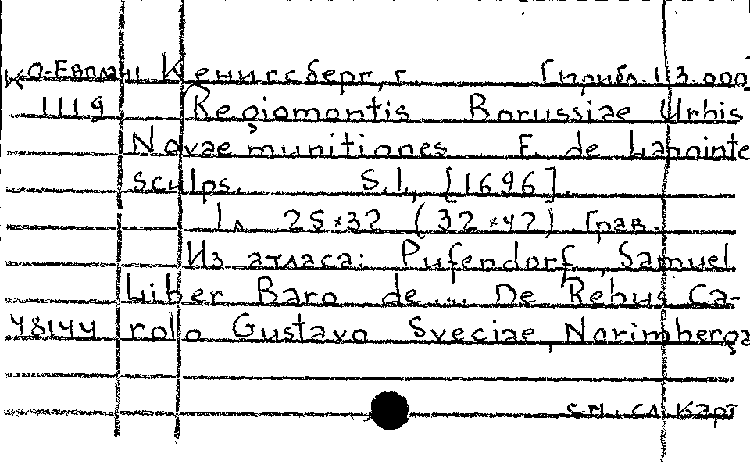 Ко-Евплан Кенигсберг, г. [прибл. 1:3.000]
1119 Regiomontis Borussiae Urbis
Novae munitiones E. de Lapointe
sculps. S.l., [1696].
1 л. 25×32 (32×42) Грав.
Из атласа: Pufendorf, Samuel
Liber Baro de... De Rebus Ca-
48144 rolo Gustavo Sveciae, Norimberga
см. сл. карт